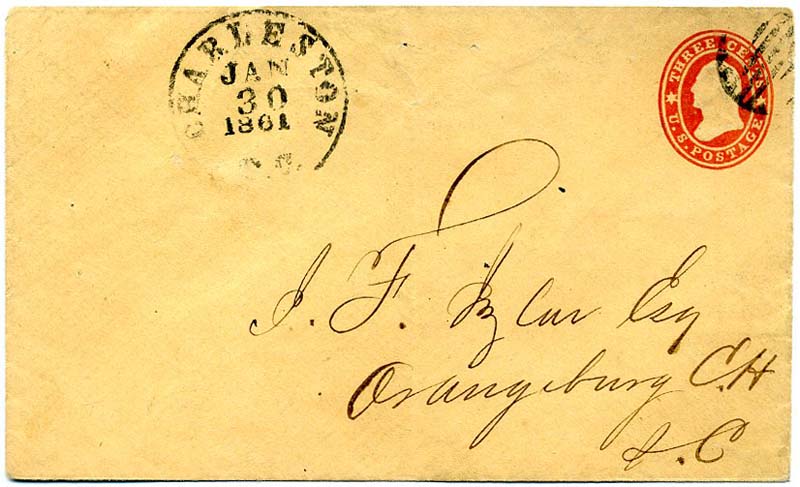 CHARLESTON
JAN
30
1861
S.C.
THREE CENTS
U.S. POSTAGE
J. F. Izlar Esq
Orangeburg C.H
S.C